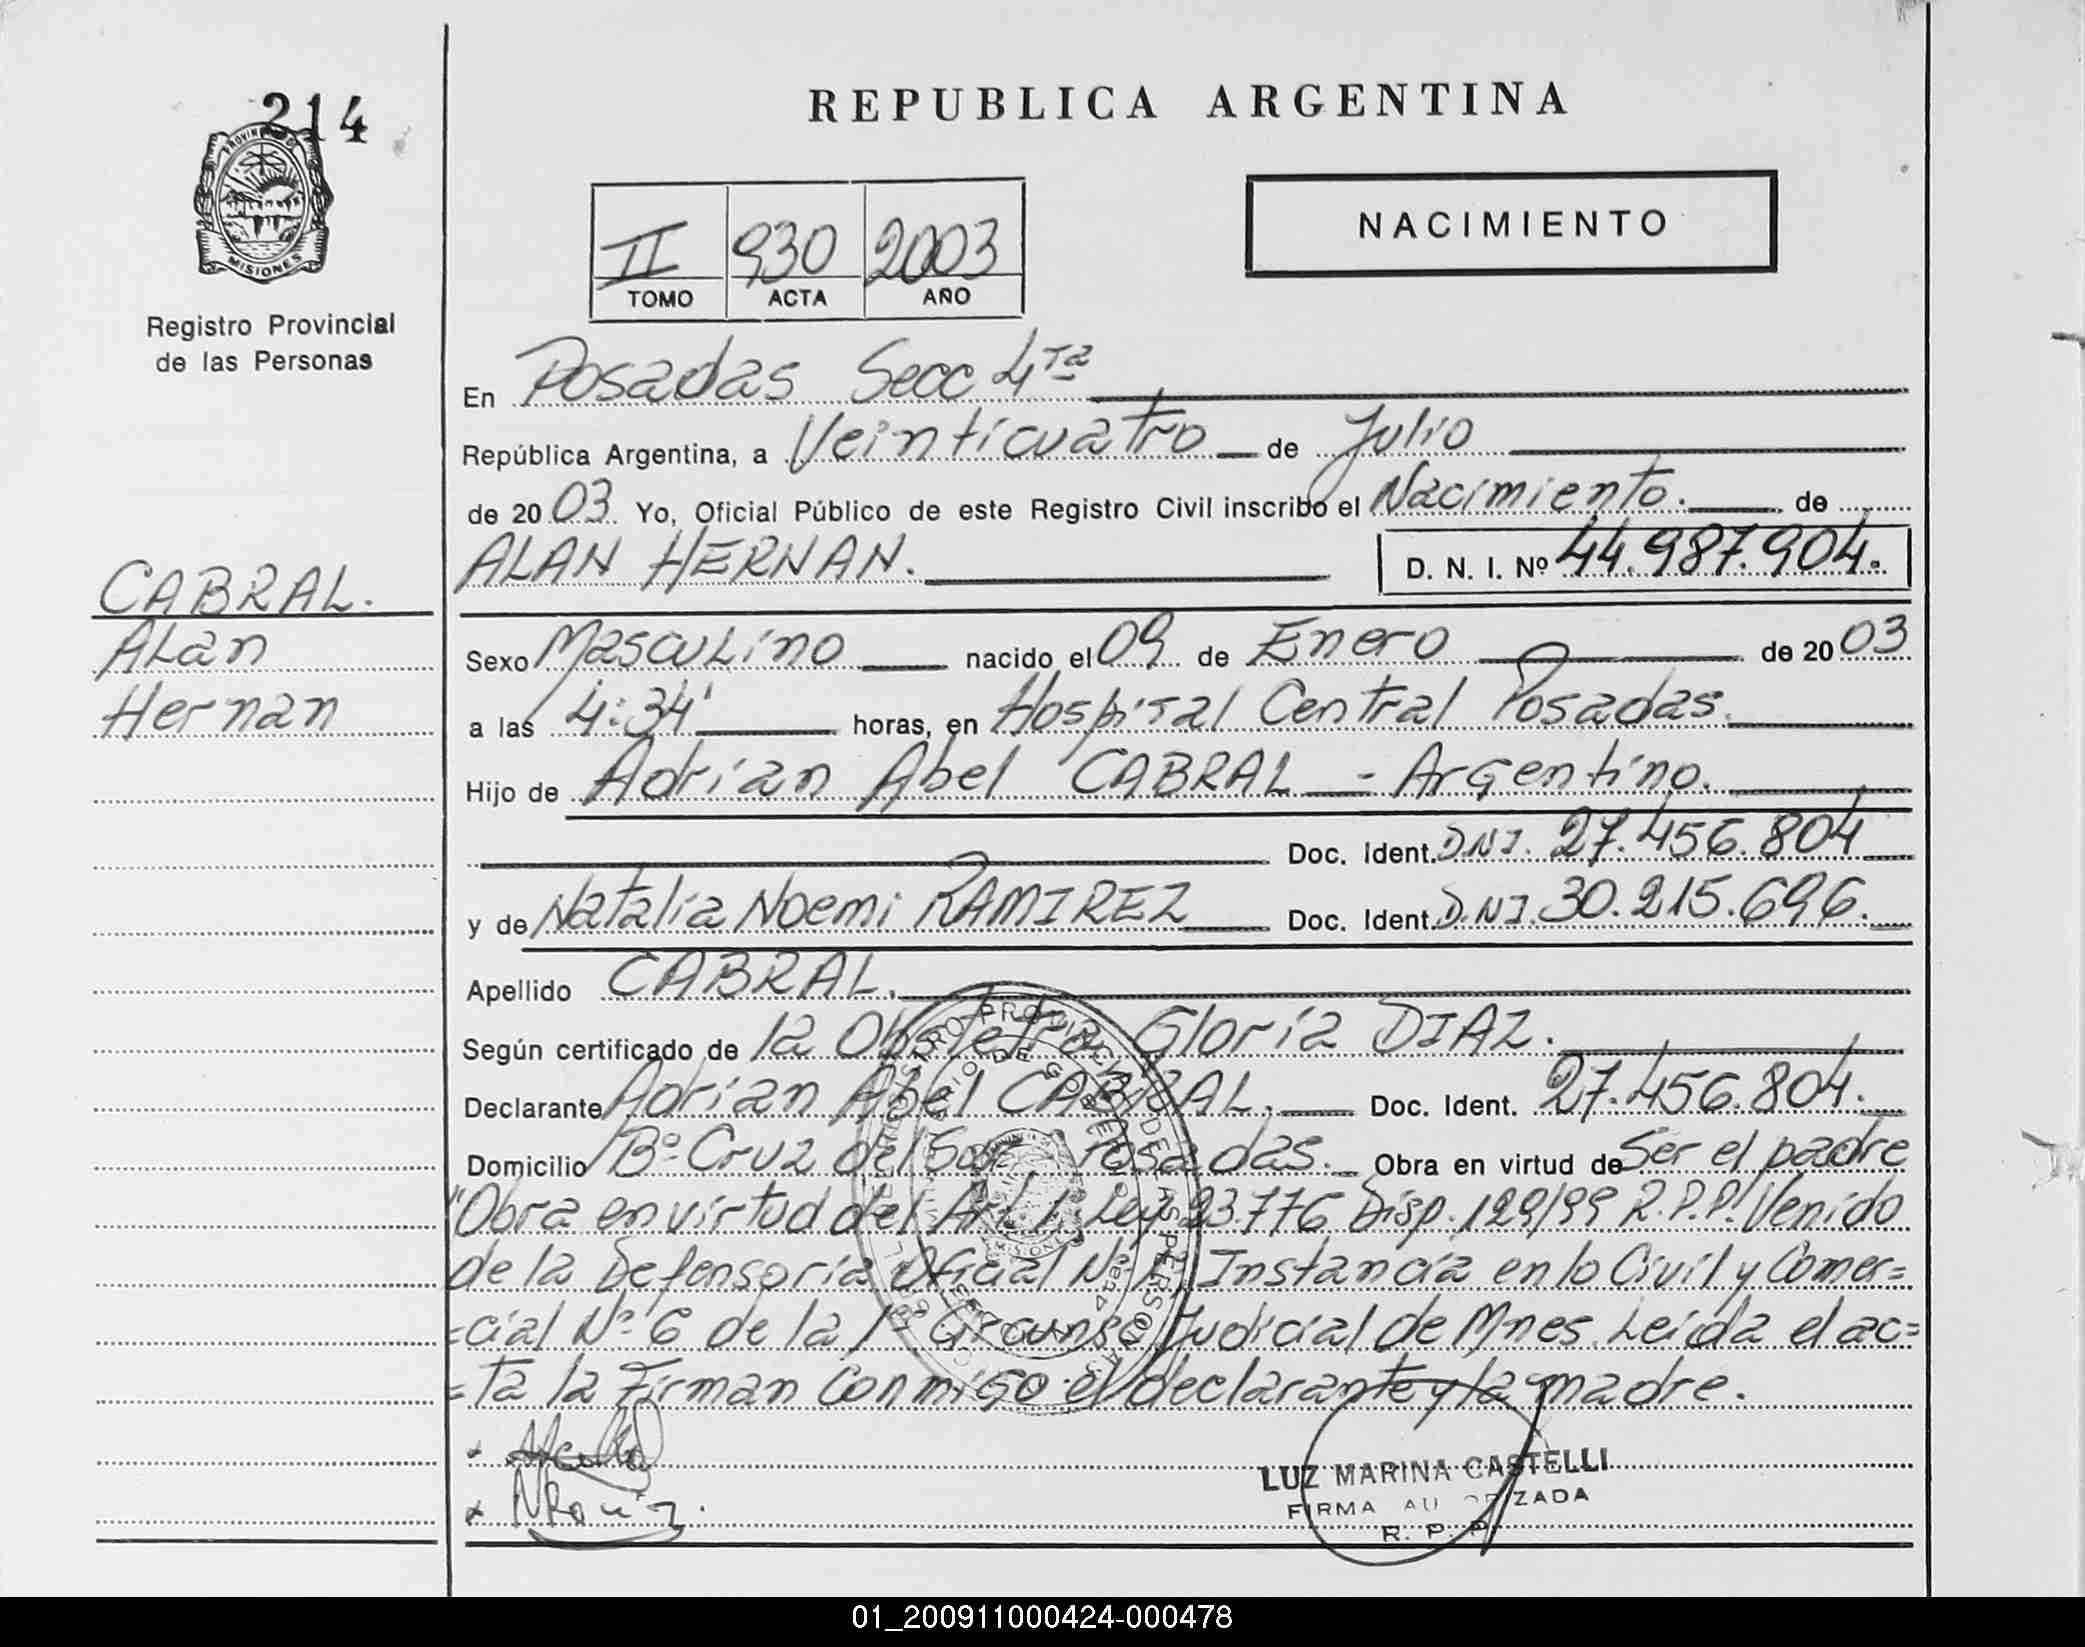 214
PROVINCIA DE
MISIONES
Registro Provincial
de las Personas
REPUBLICA ARGENTINA
NACIMIENTO
II 930 2003
TOMO ACTA AÑO
En Posadas Secc 4ta
República Argentina, a Veinticuatro de Julio
de 2003 Yo, Oficial Público de este Registro Civil inscribo el Nacimiento. de
ALAN HERNAN. D. N. I. Nº 44.987.904.
CABRAL.
Alan
Hernan
Sexo Masculino nacido el 09 de Enero de 2003
a las 4:34' horas, en Hospital Central Posadas.
Hijo de Adrian Abel CABRAL - Argentino.
Doc. Ident. D.N.I. 27.456.804
y de Natalia Noemi RAMIREZ Doc. Ident. D.N.I. 30.215.696.
Apellido CABRAL.
Según certificado de la Obstetra Gloria DIAZ.
Declarante Adrian Abel CABRAL. Doc. Ident. 27.456.804.
Domicilio Bº Cruz del Sur Posadas. Obra en virtud de Ser el padre
"Obra en virtud del Art. 1º Ley 23.776 Disp. 129/99 R.P.P." Venido
de la Defensoría Oficial Nº 1 Instancia en lo Civil y Comer=
=cial Nº 6 de la 1ra Circunsc. Judicial de Mnes. Leida el ac=
=ta la Firman Conmigo el declarante y la madre.
LUZ MARINA CASTELLI
FIRMA AUTORIZADA
R. P. P.
01_200911000424-000478